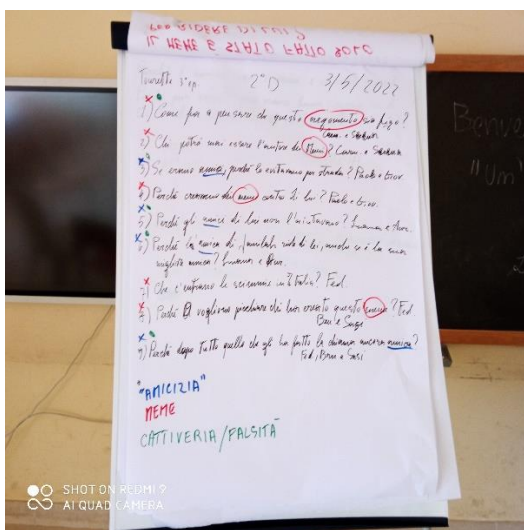 IL MEME È STATO FATTO SOLO
PER RIDERE DI LUI?
2°D 3/5/2022
1) Come fai a pensare che questo negomento sia figo?
2) Chi potrà mai essere l'autore dei Meme?
3) Se erano amici, perché lo evitavano per strada? Paolo e Giov.
4) Perché creavano dei meme contro di lui? Paolo e Giov.
5) Perché gli amici di lui non l'aiutavano?
6) Perché la amica di ride di lei, anche se è la sua
migliore amica?
7) Che c'entrano le scimmie in Italia? Fed.
8) Perché vogliono picchiare chi ha creato questo meme? Fed
Bru e Susi
9) Perché dopo tutto quello che gli ha fatto la chiama ancora amica?
Fed, Bru e Susi
"AMICIZIA"
MEME
CATTIVERIA/FALSITÀ
Benve
"Un"
SHOT ON REDMI 9
AI QUAD CAMERA